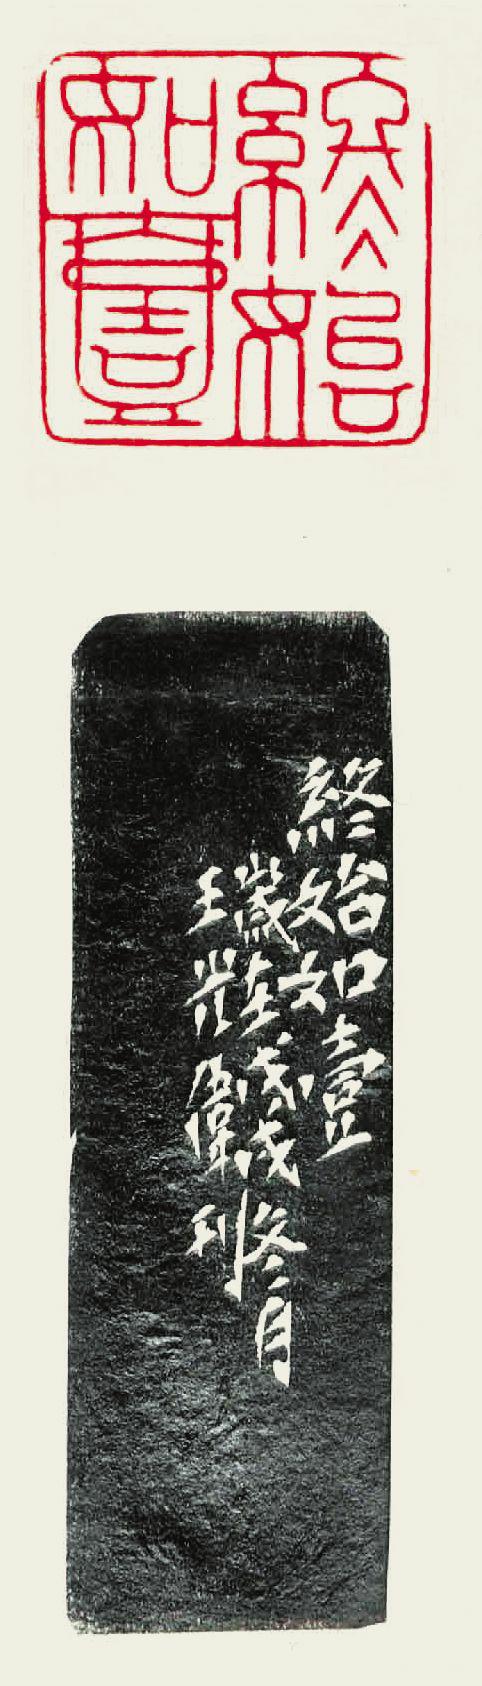 終始
如壹
終始如壹
歲在戊戌冬月
王光衛刊